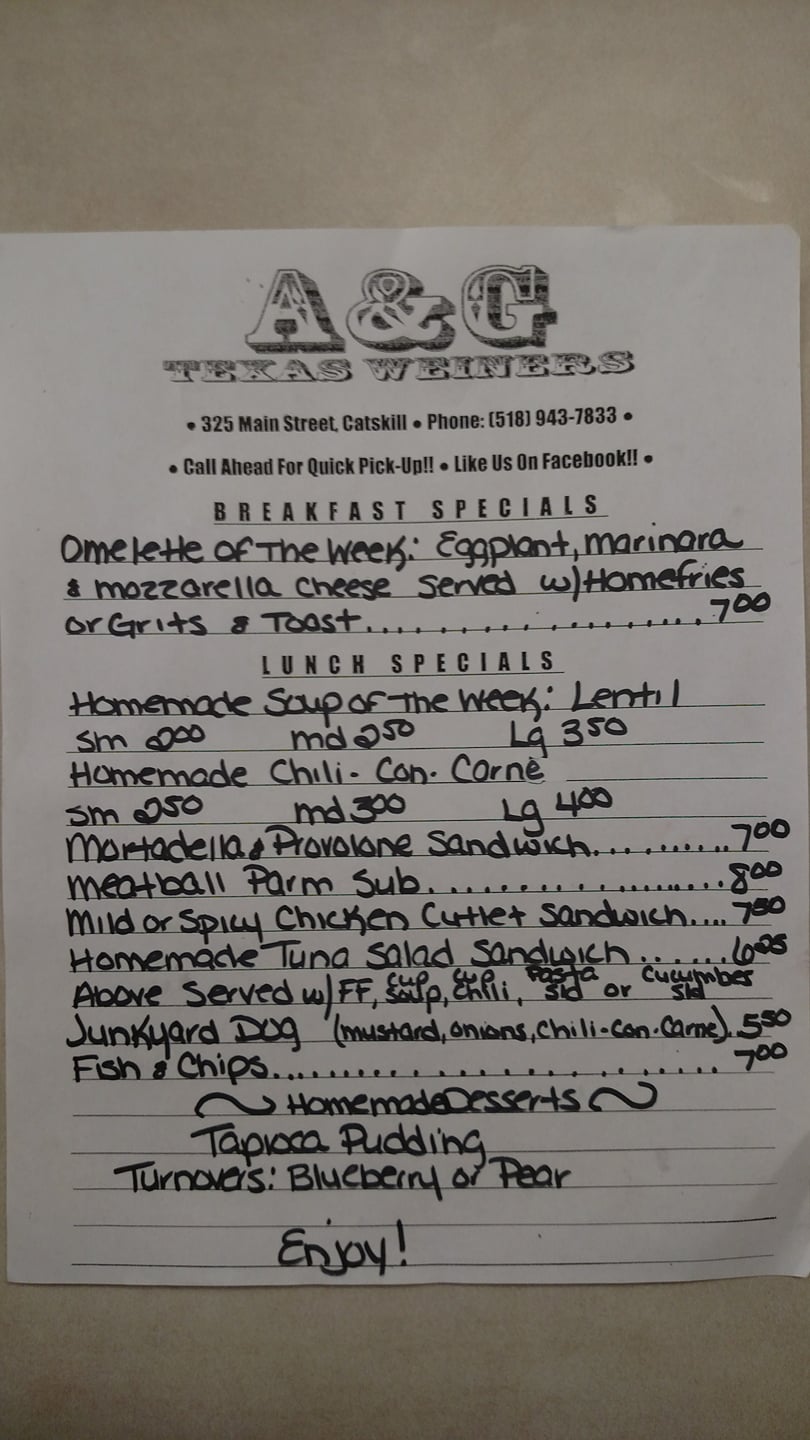 A&G
TEXAS WEINERS
• 325 Main Street, Catskill • Phone: (518) 943-7833 •
• Call Ahead For Quick Pick-Up!! • Like Us On Facebook!! •
BREAKFAST SPECIALS
Omelette of The Week: Eggplant, marinara
& mozzarella cheese served w/Homefries
or Grits & Toast.................... 7.00
LUNCH SPECIALS
Homemade Soup of The Week: Lentil
Sm 2.00 md 2.50 Lg 3.50
Homemade Chili-Con-Carne
Sm 2.50 md 3.00 Lg 4.00
Mortadella & Provolone Sandwich.......... 7.00
Meatball Parm Sub.................... 8.00
Mild or Spicy Chicken Cutlet Sandwich.... 7.50
Homemade Tuna Salad Sandwich...... 6.25
Above Served w/FF, cup soup, cup chili, Pasta Sld or Cucumber Sld
Junkyard Dog (mustard, onions, chili-con-Carne). 5.50
Fish & Chips........................ 7.00
~ Homemade Desserts ~
Tapioca Pudding
Turnovers: Blueberry or Pear
Enjoy!